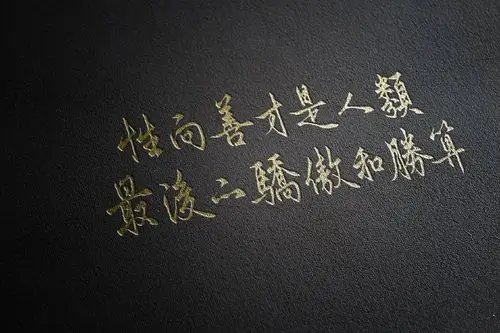 性向善才是人類
最後的驕傲和勝算